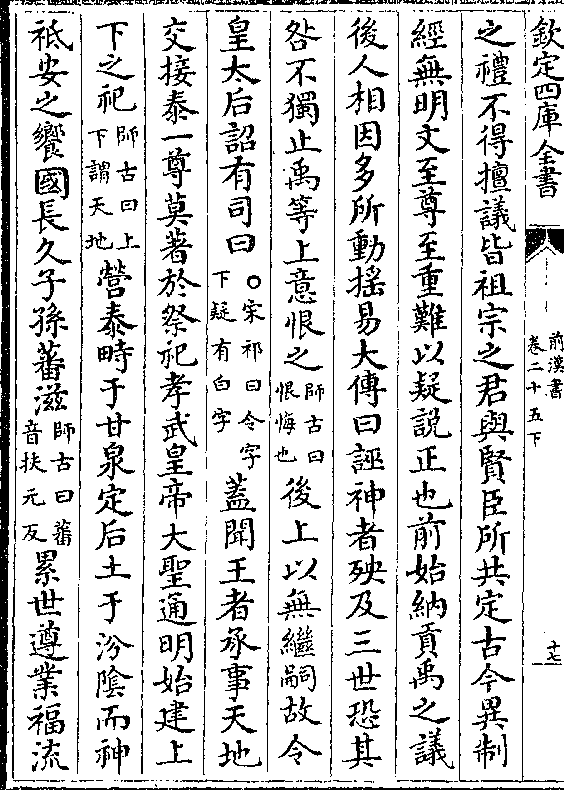 欽定四庫全書
前漢書
卷二十五下
十七
之禮不得擅議皆祖宗之君與賢臣所共定古今異制
經無明文至尊至重難以疑說正也前始納貢禹之議
後人相因多所動搖易大傳曰誣神者殃及三世恐其
咎不獨止禹等上意恨之師古曰恨悔也後上以無繼嗣故令
皇太后詔有司曰○宋祁曰令字下疑有白字蓋聞王者承事天地
交接泰一尊莫著於祭祀孝武皇帝大聖通明始建上
下之祀師古曰上下謂天地營泰畤于甘泉定后土于汾陰而神
祗安之饗國長久子孫蕃滋師古曰蕃音扶元反累世遵業福流